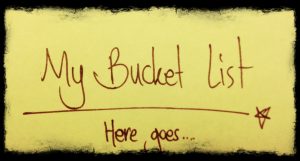 My Bucket List
Here goes...